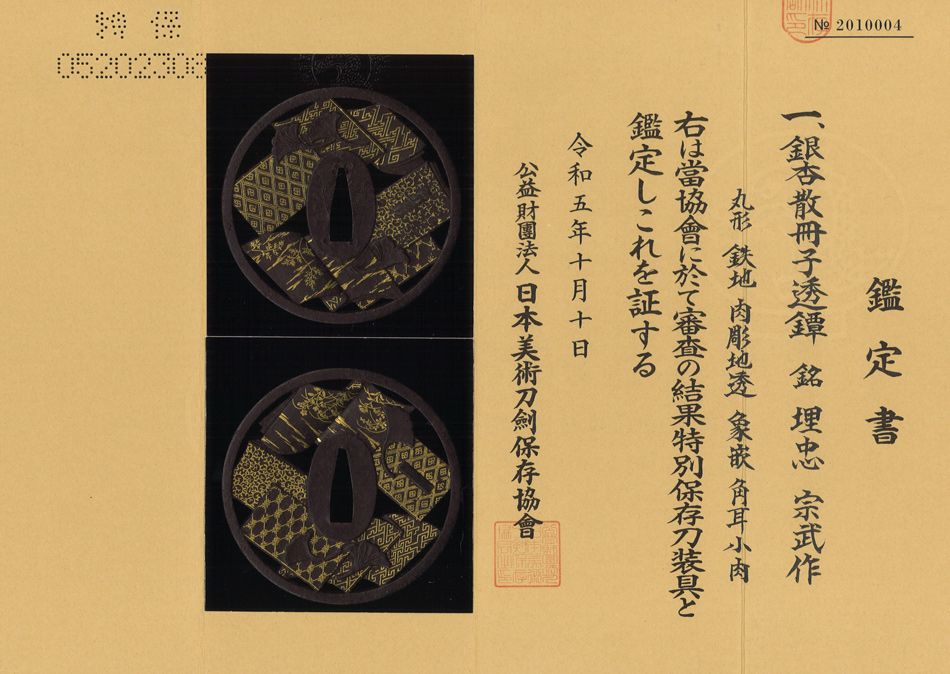 鑑定書
一、銀杏散冊子透鐔 銘 埋忠 宗武作
丸形 鉄地 肉彫地透 象嵌 角耳小肉
右は當協會に於て審査の結果特別保存刀装具と
鑑定しこれを証する
令和五年十月十日
公益財團法人 日本美術刀劍保存協會
№ 2010004
特 保